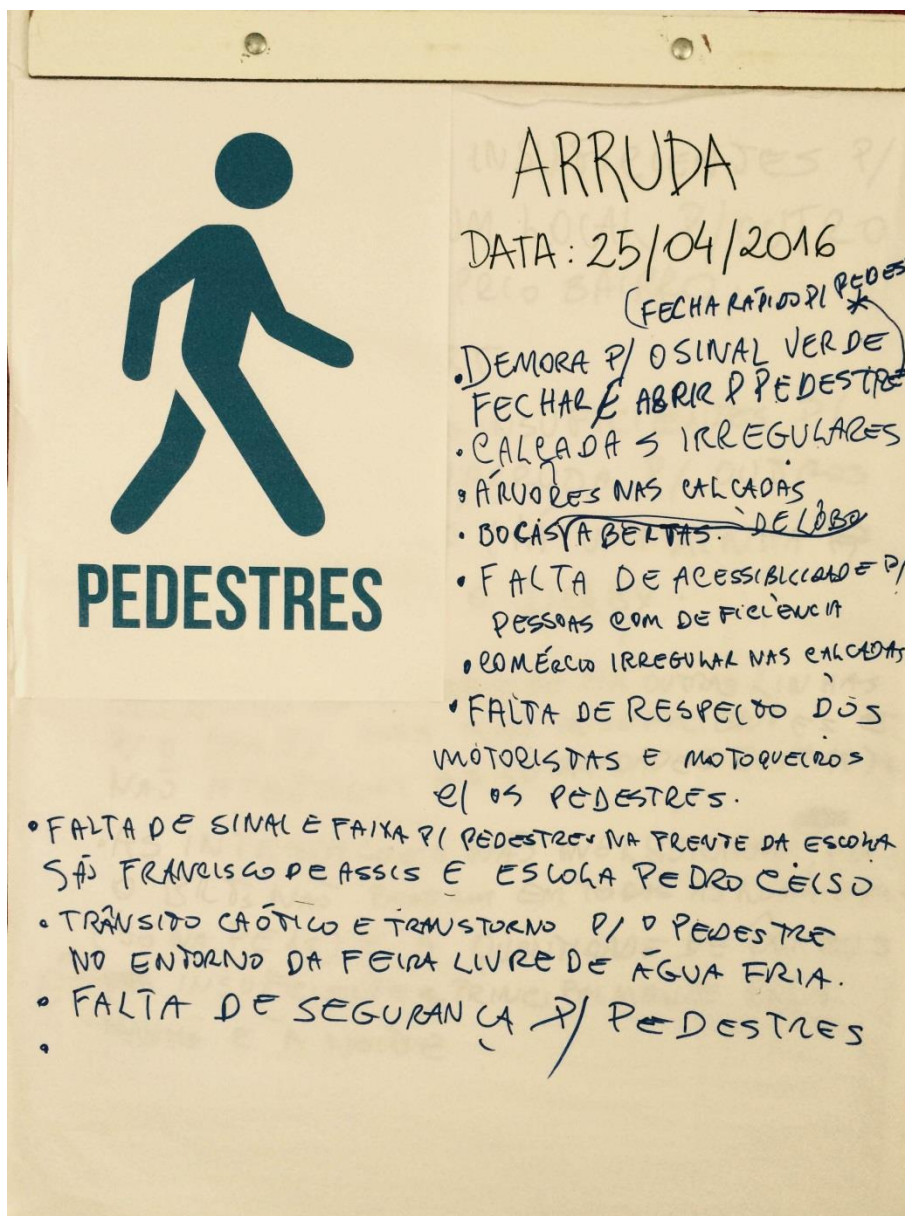 ARRUDA
DATA: 25/04/2016
(FECHA RÁPIDO P/ PEDES
*
• DEMORA P/ O SINAL VERDE
FECHAR E ABRIR P PEDESTRE
• CALÇADAS IRREGULARES
• ÁRVORES NAS CALÇADAS
• BOCAS ABERTAS. DE LOBO
• FALTA DE ACESSIBILIDADE P/
PESSOAS COM DEFICIÊNCIA
• COMÉRCIO IRREGULAR NAS CALÇADAS
• FALTA DE RESPEITO DOS
MOTORISTAS E MOTOQUEIROS
C/ OS PEDESTRES.
PEDESTRES
• FALTA DE SINAL E FAIXA P/ PEDESTRES NA FRENTE DA ESCOLA
SÃO FRANCISCO DE ASSIS E ESCOLA PEDRO CELSO
• TRÂNSITO CAÓTICO E TRANSTORNO P/ O PEDESTRE
NO ENTORNO DA FEIRA LIVRE DE ÁGUA FRIA.
• FALTA DE SEGURANÇA P/ PEDESTRES
•